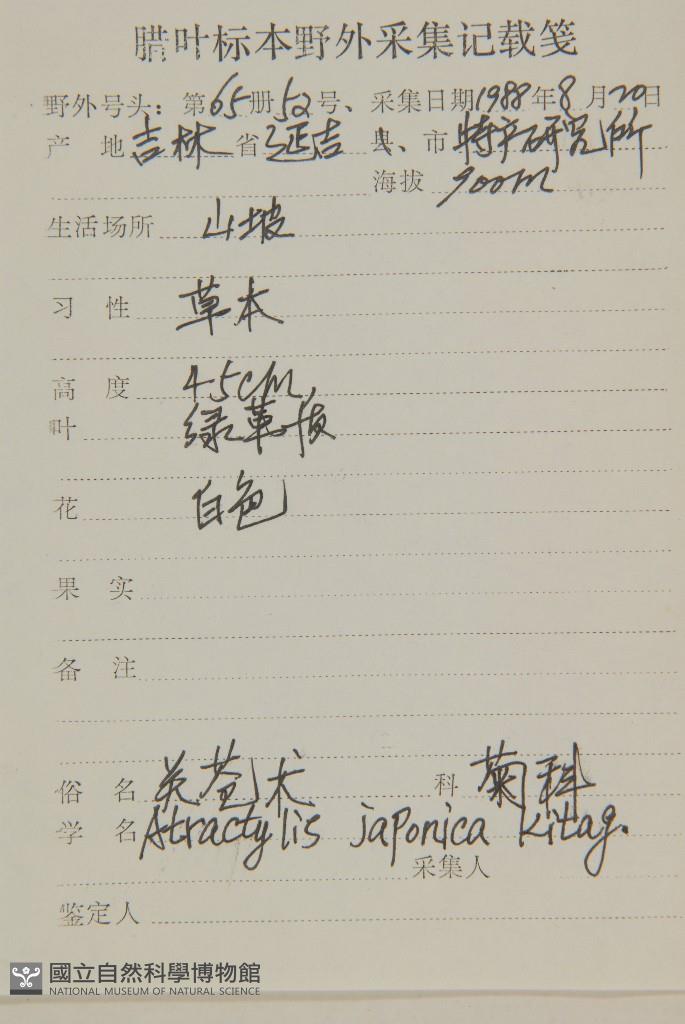 腊叶标本野外采集记载笺
野外号头：第65册52号、采集日期1988年8月20日
产 地 吉林 省 延吉 县、市 特产研究所
海拔 900m
生活场所 山坡
习 性 草本
高 度 45cm,
叶 绿革质
花 白色
果 实
备 注
俗 名 关苍术 科 菊科
学 名 Atractylis japonica Kitag.
采集人
鉴定人
國立自然科學博物館
NATIONAL MUSEUM OF NATURAL SCIENCE